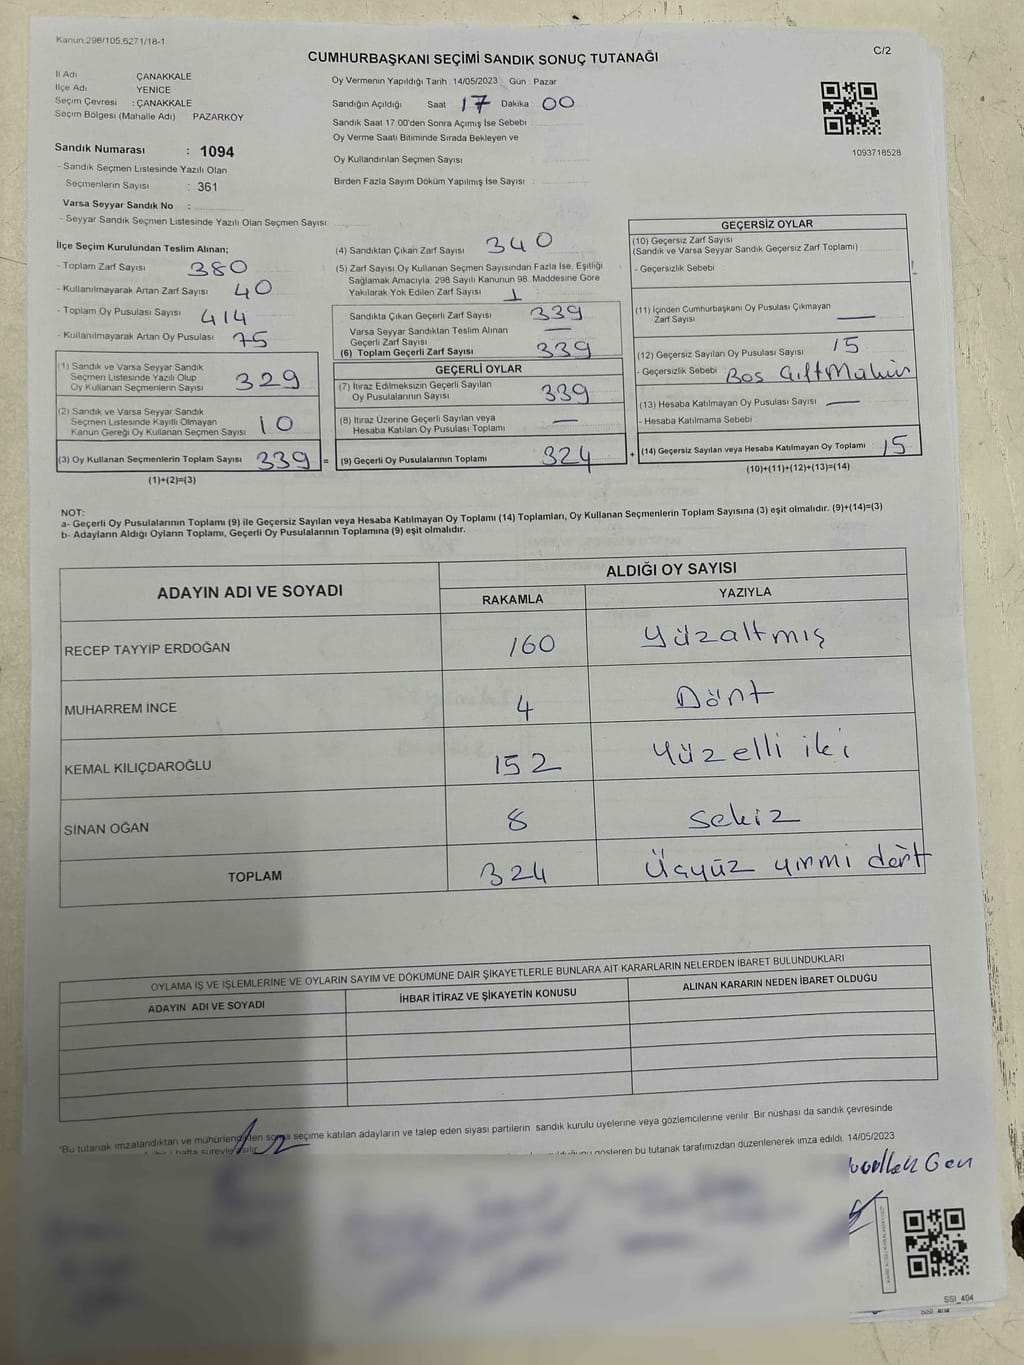 Kanun:298/105;6271/18-1
C/2
CUMHURBAŞKANI SEÇİMİ SANDIK SONUÇ TUTANAĞI
İl Adı ÇANAKKALE
İlçe Adı YENİCE
Seçim Çevresi : ÇANAKKALE
Seçim Bölgesi (Mahalle Adı) PAZARKÖY
Oy Vermenin Yapıldığı Tarih : 14/05/2023 Gün : Pazar
Sandığın Açıldığı Saat 17 Dakika 00
Sandık Saat 17:00'den Sonra Açımış İse Sebebi
Oy Verme Saati Bitiminde Sırada Bekleyen ve
Oy Kullandırılan Seçmen Sayısı
Birden Fazla Sayım Döküm Yapılmış İse Sayısı :
1093718528
Sandık Numarası : 1094
- Sandık Seçmen Listesinde Yazılı Olan
Seçmenlerin Sayısı : 361
Varsa Seyyar Sandık No :
- Seyyar Sandık Seçmen Listesinde Yazılı Olan Seçmen Sayısı
İlçe Seçim Kurulundan Teslim Alınan;
- Toplam Zarf Sayısı 380
- Kullanılmayarak Artan Zarf Sayısı 40
- Toplam Oy Pusulası Sayısı 414
- Kullanılmayarak Artan Oy Pusulası 75
(1) Sandık ve Varsa Seyyar Sandık
Seçmen Listesinde Yazılı Olup
Oy Kullanan Seçmenlerin Sayısı 329
(2) Sandık ve Varsa Seyyar Sandık
Seçmen Listesinde Kayıtlı Olmayan
Kanun Gereği Oy Kullanan Seçmen Sayısı 10
(3) Oy Kullanan Seçmenlerin Toplam Sayısı 339 =
(1)+(2)=(3)
(4) Sandıktan Çıkan Zarf Sayısı 340
(5) Zarf Sayısı Oy Kullanan Seçmen Sayısından Fazla İse, Eşitliği
Sağlamak Amacıyla, 298 Sayılı Kanunun 98. Maddesine Göre
Yakılarak Yok Edilen Zarf Sayısı 1
Sandıkta Çıkan Geçerli Zarf Sayısı 339
Varsa Seyyar Sandıktan Teslim Alınan
Geçerli Zarf Sayısı —
(6) Toplam Geçerli Zarf Sayısı 339
GEÇERLİ OYLAR
(7) İtiraz Edilmeksizin Geçerli Sayılan
Oy Pusulalarının Sayısı 339
(8) İtiraz Üzerine Geçerli Sayılan veya
Hesaba Katılan Oy Pusulası Toplamı —
(9) Geçerli Oy Pusulalarının Toplamı 324 +
GEÇERSİZ OYLAR
(10) Geçersiz Zarf Sayısı
(Sandık ve Varsa Seyyar Sandık Geçersiz Zarf Toplamı)
- Geçersizlik Sebebi
(11) İçinden Cumhurbaşkanı Oy Pusulası Çıkmayan
Zarf Sayısı —
(12) Geçersiz Sayılan Oy Pusulası Sayısı 15
- Geçersizlik Sebebi Boş Çift Mühür
(13) Hesaba Katılmayan Oy Pusulası Sayısı —
- Hesaba Katılmama Sebebi
(14) Geçersiz Sayılan veya Hesaba Katılmayan Oy Toplamı 15
(10)+(11)+(12)+(13)=(14)
NOT:
a- Geçerli Oy Pusulalarının Toplamı (9) ile Geçersiz Sayılan veya Hesaba Katılmayan Oy Toplamı (14) Toplamları, Oy Kullanan Seçmenlerin Toplam Sayısına (3) eşit olmalıdır. (9)+(14)=(3)
b- Adayların Aldığı Oyların Toplamı, Geçerli Oy Pusulalarının Toplamına (9) eşit olmalıdır.
ADAYIN ADI VE SOYADI
ALDIĞI OY SAYISI
RAKAMLA YAZIYLA
RECEP TAYYİP ERDOĞAN 160 Yüzaltmış
MUHARREM İNCE 4 Dört
KEMAL KILIÇDAROĞLU 152 Yüzelli iki
SİNAN OĞAN 8 sekiz
TOPLAM 324 Üçyüz yirmi dört
OYLAMA İŞ VE İŞLEMLERİNE VE OYLARIN SAYIM VE DÖKÜMÜNE DAİR ŞİKAYETLERLE BUNLARA AİT KARARLARIN NELERDEN İBARET BULUNDUKLARI
ADAYIN ADI VE SOYADI İHBAR İTİRAZ VE ŞİKAYETİN KONUSU ALINAN KARARIN NEDEN İBARET OLDUĞU
*Bu tutanak imzalandıktan ve mühürlendikten sonra seçime katılan adayların ve talep eden siyasi partilerin sandık kurulu üyelerine veya gözlemcilerine verilir. Bir nüshası da sandık çevresinde
hafta süreyle gösteren bu tutanak tarafımızdan düzenlenerek imza edildi. 14/05/2023
SSI_404